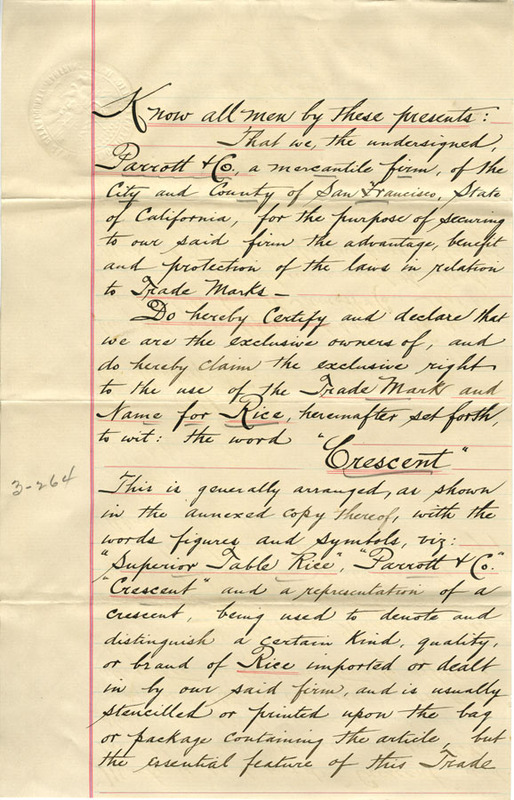 Know all men by these presents:
That we, the undersigned,
Parrott & Co., a mercantile firm, of the
City and County of San Francisco, State
of California, for the purpose of securing
to our said firm the advantage, benefit
and protection of the laws in relation
to Trade Marks –
Do hereby Certify and declare that
we are the exclusive owners of, and
do hereby claim the exclusive right
to the use of the Trade Mark and
Name for Rice, hereinafter set forth,
to wit: the word
"Crescent"
3-264
This is generally arranged, as shown
in the annexed copy thereof, with the
words figures and symbols, viz:
"Superior Table Rice", "Parrott & Co."
"Crescent" and a representation of a
crescent, being used to denote and
distinguish a certain kind, quality,
or brand of Rice imported or dealt
in by our said firm, and is usually
stencilled or printed upon the bag
or package containing the article, but
the essential feature of this Trade